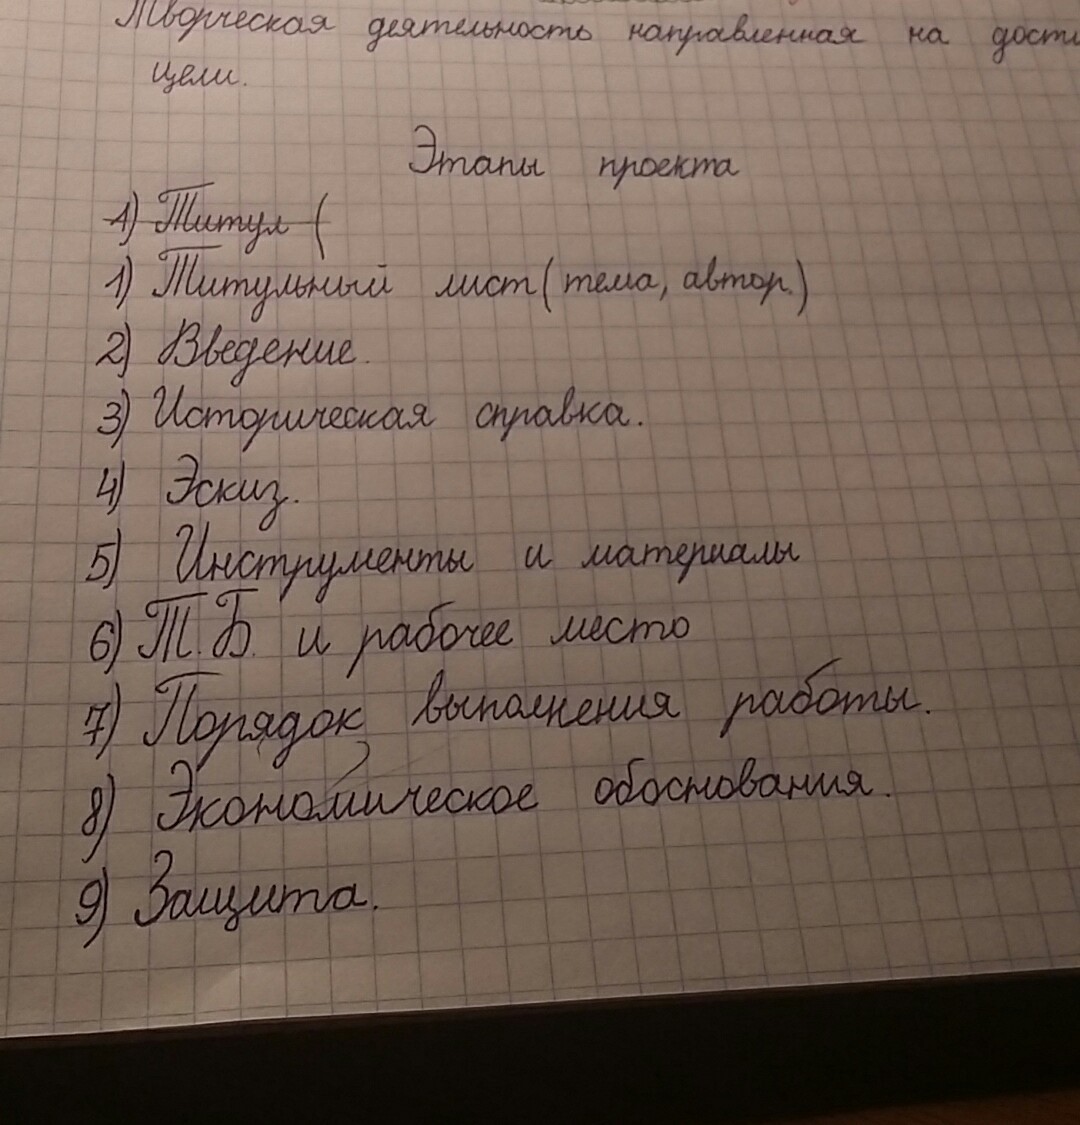 Творческая деятельность направленная на дости
цели.
Этапы проекта
1) Титул (
1) Титульный лист (тема, автор.)
2) Введение.
3) Историческая справка.
4) Эскиз.
5) Инструменты и материалы
6) Т.Б. и рабочее место
7) Порядок выполнения работы.
8) Экономическое обоснования.
9) Защита.